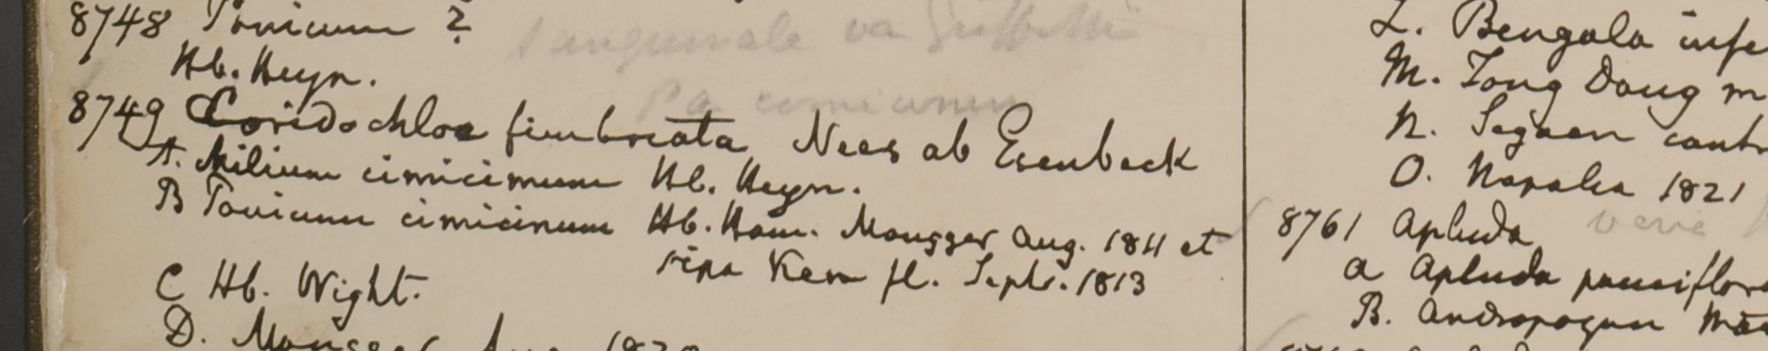 8748 Panicum ?
Hb. Heyn.
8749 Coridochloa fimbriata Nees ab Esenbeck
A. Milium cimicinum Hb. Heyn.
B Panicum cimicinum Hb. Ham. Mongger Aug. 1811 et
ripa Kern fl. Septr. 1813
C Hb. Wight.
D. Mongger Aug.
L. Bengala infe
M. Tong Dong m
N. Segaen
O. Napalia 1821
8761 Apluda
a Apluda pauciflora
B. Andropogon